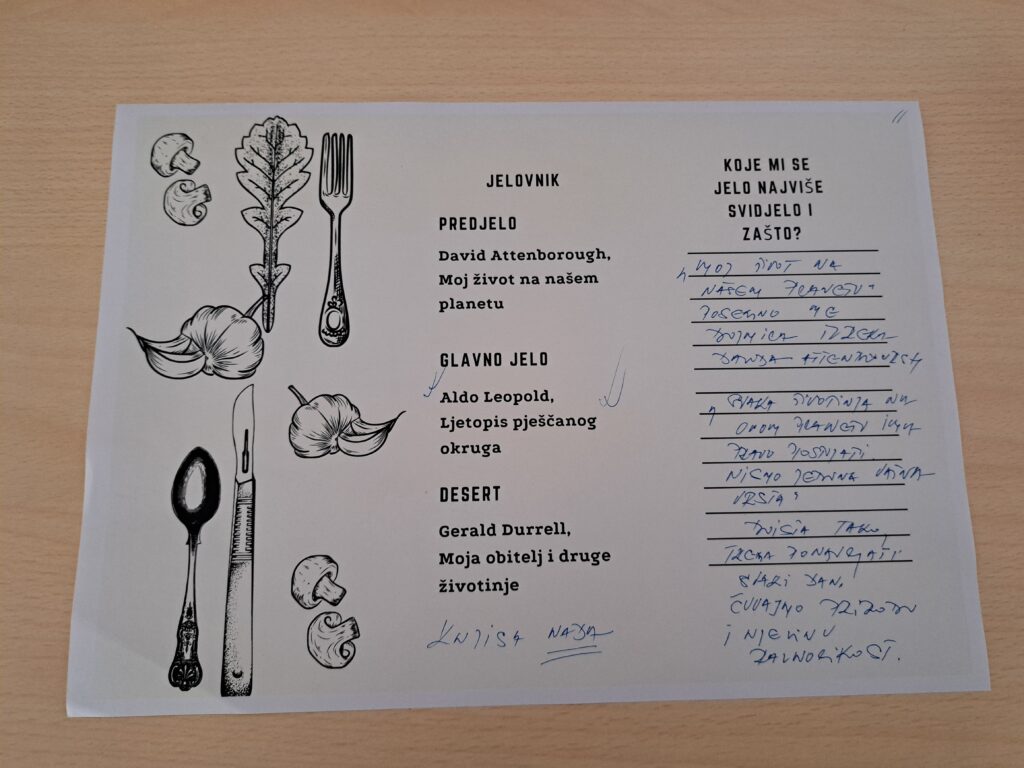 JELOVNIK
PREDJELO
David Attenborough,
Moj život na našem
planetu
GLAVNO JELO
Aldo Leopold,
Ljetopis pješčanog
okruga
DESERT
Gerald Durrell,
Moja obitelj i druge
životinje
KNJIGA NADA
KOJE MI SE
JELO NAJVIŠE
SVIDJELO I
ZAŠTO?
„MOJ ŽIVOT NA
NAŠEM PLANETU"
POSEBNO ME
DOJMILA IZREKA
DAVIDA ATTENBOROUGH
„SVAKA ŽIVOTINJA NA
OVOM PLANETU IMA
PRAVO POSTOJATI.
NISMO JEDINA VAŽNA
VRSTA"
TAKO
TREBA PONAVLJATI
SVAKI DAN,
ČUVAJMO PRIRODU
I NJEZINU
RAZNOLIKOST.